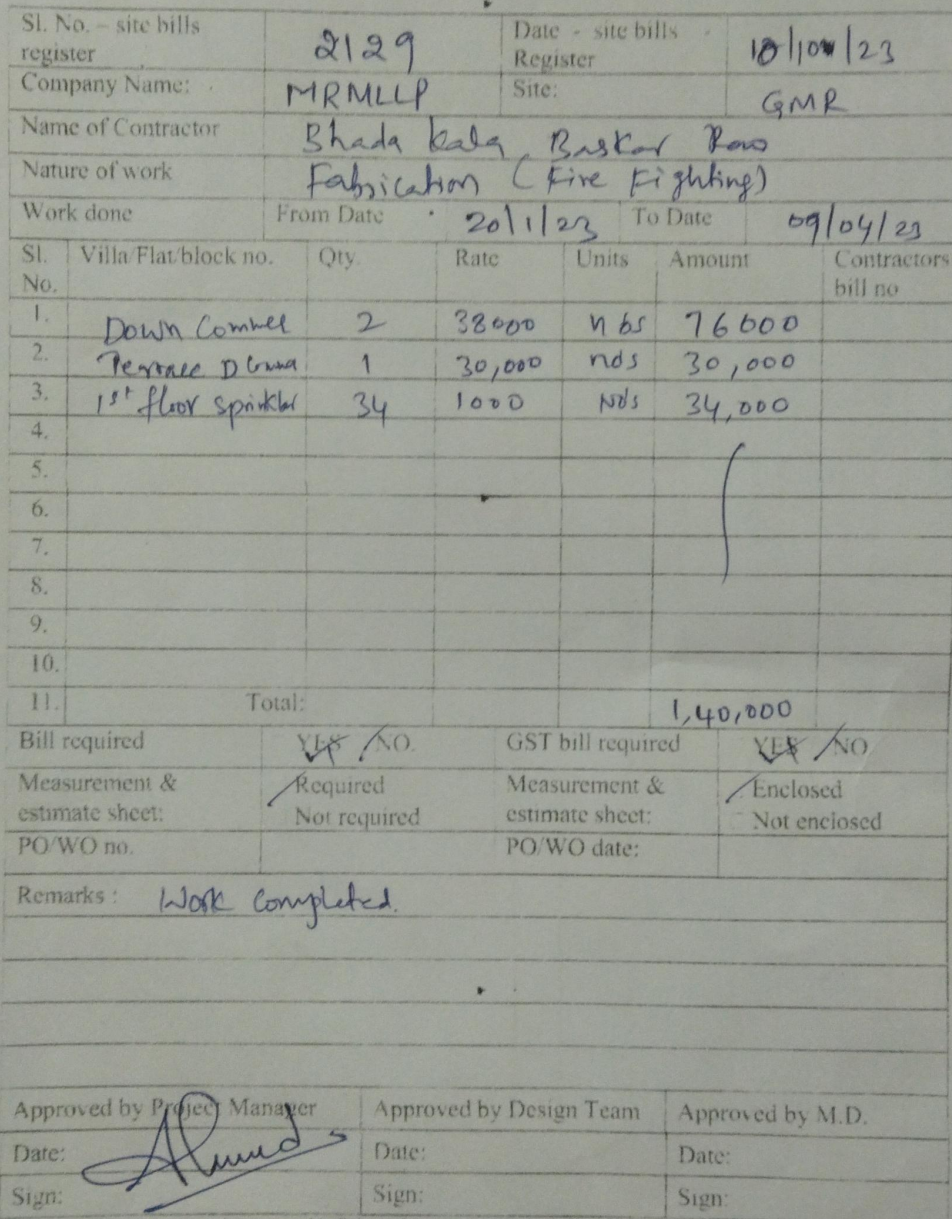 Sl. No. – site bills register 2129 Date - site bills Register 10/04/23
Company Name: MRMLLP Site: GMR
Name of Contractor Bhada kala Baskar Rao
Nature of work Fabrication (Fire Fighting)
Work done From Date 20/1/23 To Date 09/04/23
Sl. No. Villa/Flat/block no. Qty. Rate Units Amount Contractors bill no
1. Down Commel 2 38000 nbs 76000
2. Terrace D 1 30,000 nds 30,000
3. 1st floor sprinkler 34 1000 Nds 34,000
4.
5.
6.
7.
8.
9.
10.
11. Total: 1,40,000
Bill required YES /NO. GST bill required YES /NO
Measurement & estimate sheet: Required Not required Measurement & estimate sheet: Enclosed Not enclosed
PO/WO no. PO/WO date:
Remarks : Work completed.
Approved by Project Manager Approved by Design Team Approved by M.D.
Date: Date: Date:
Sign: Sign: Sign: